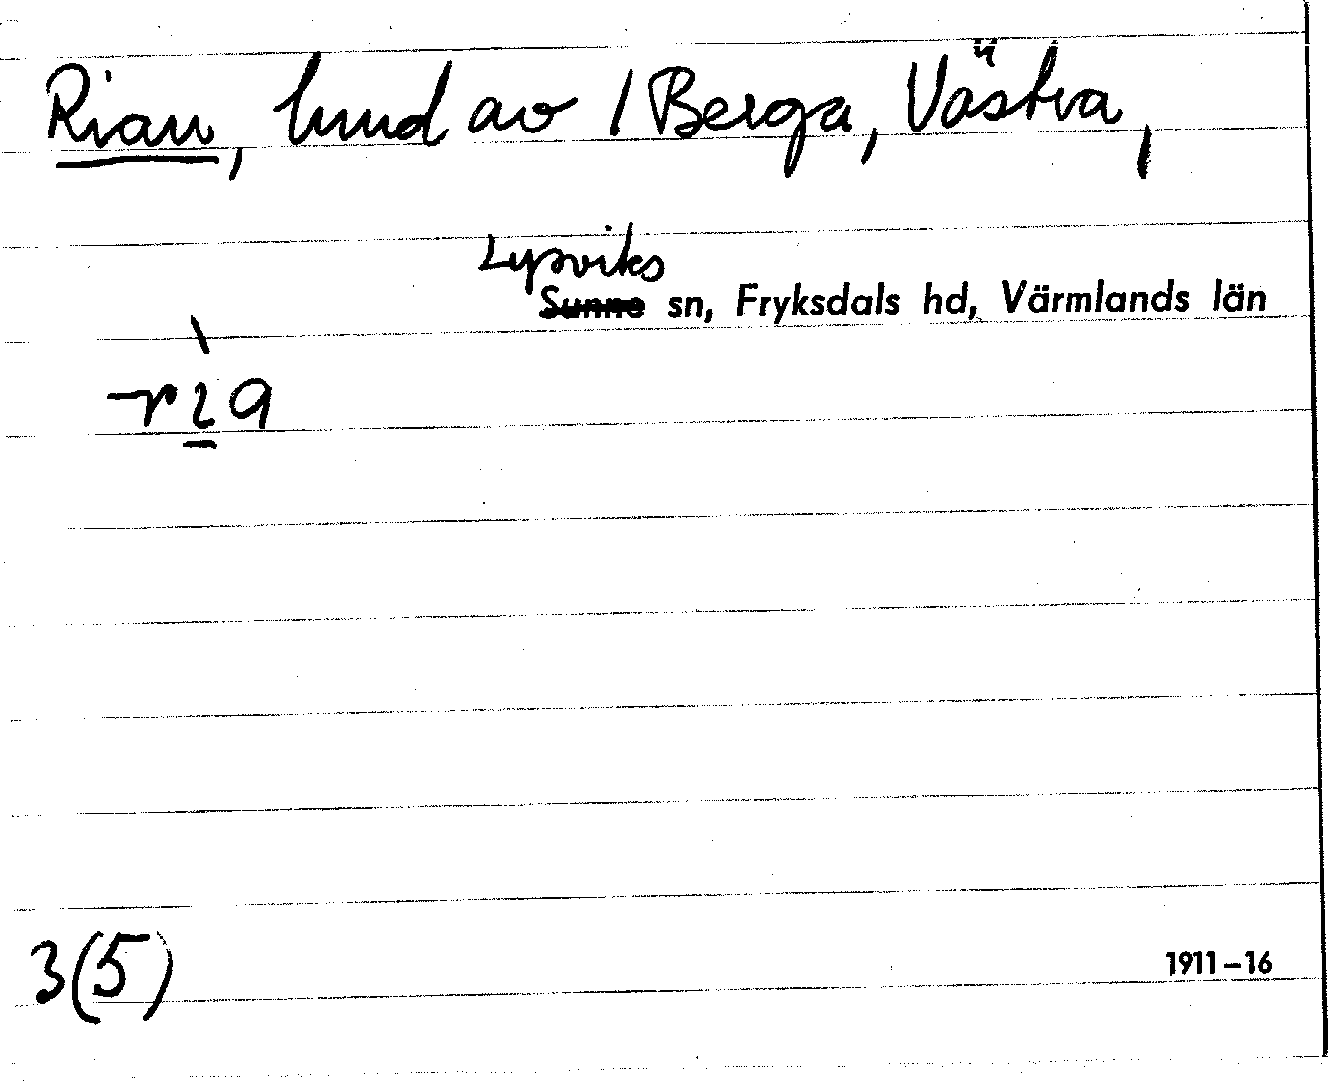 Rian, lund av 1 Berga, Västra,
Lysviks
Sunne sn, Fryksdals hd, Värmlands län
3(5)
1911–16